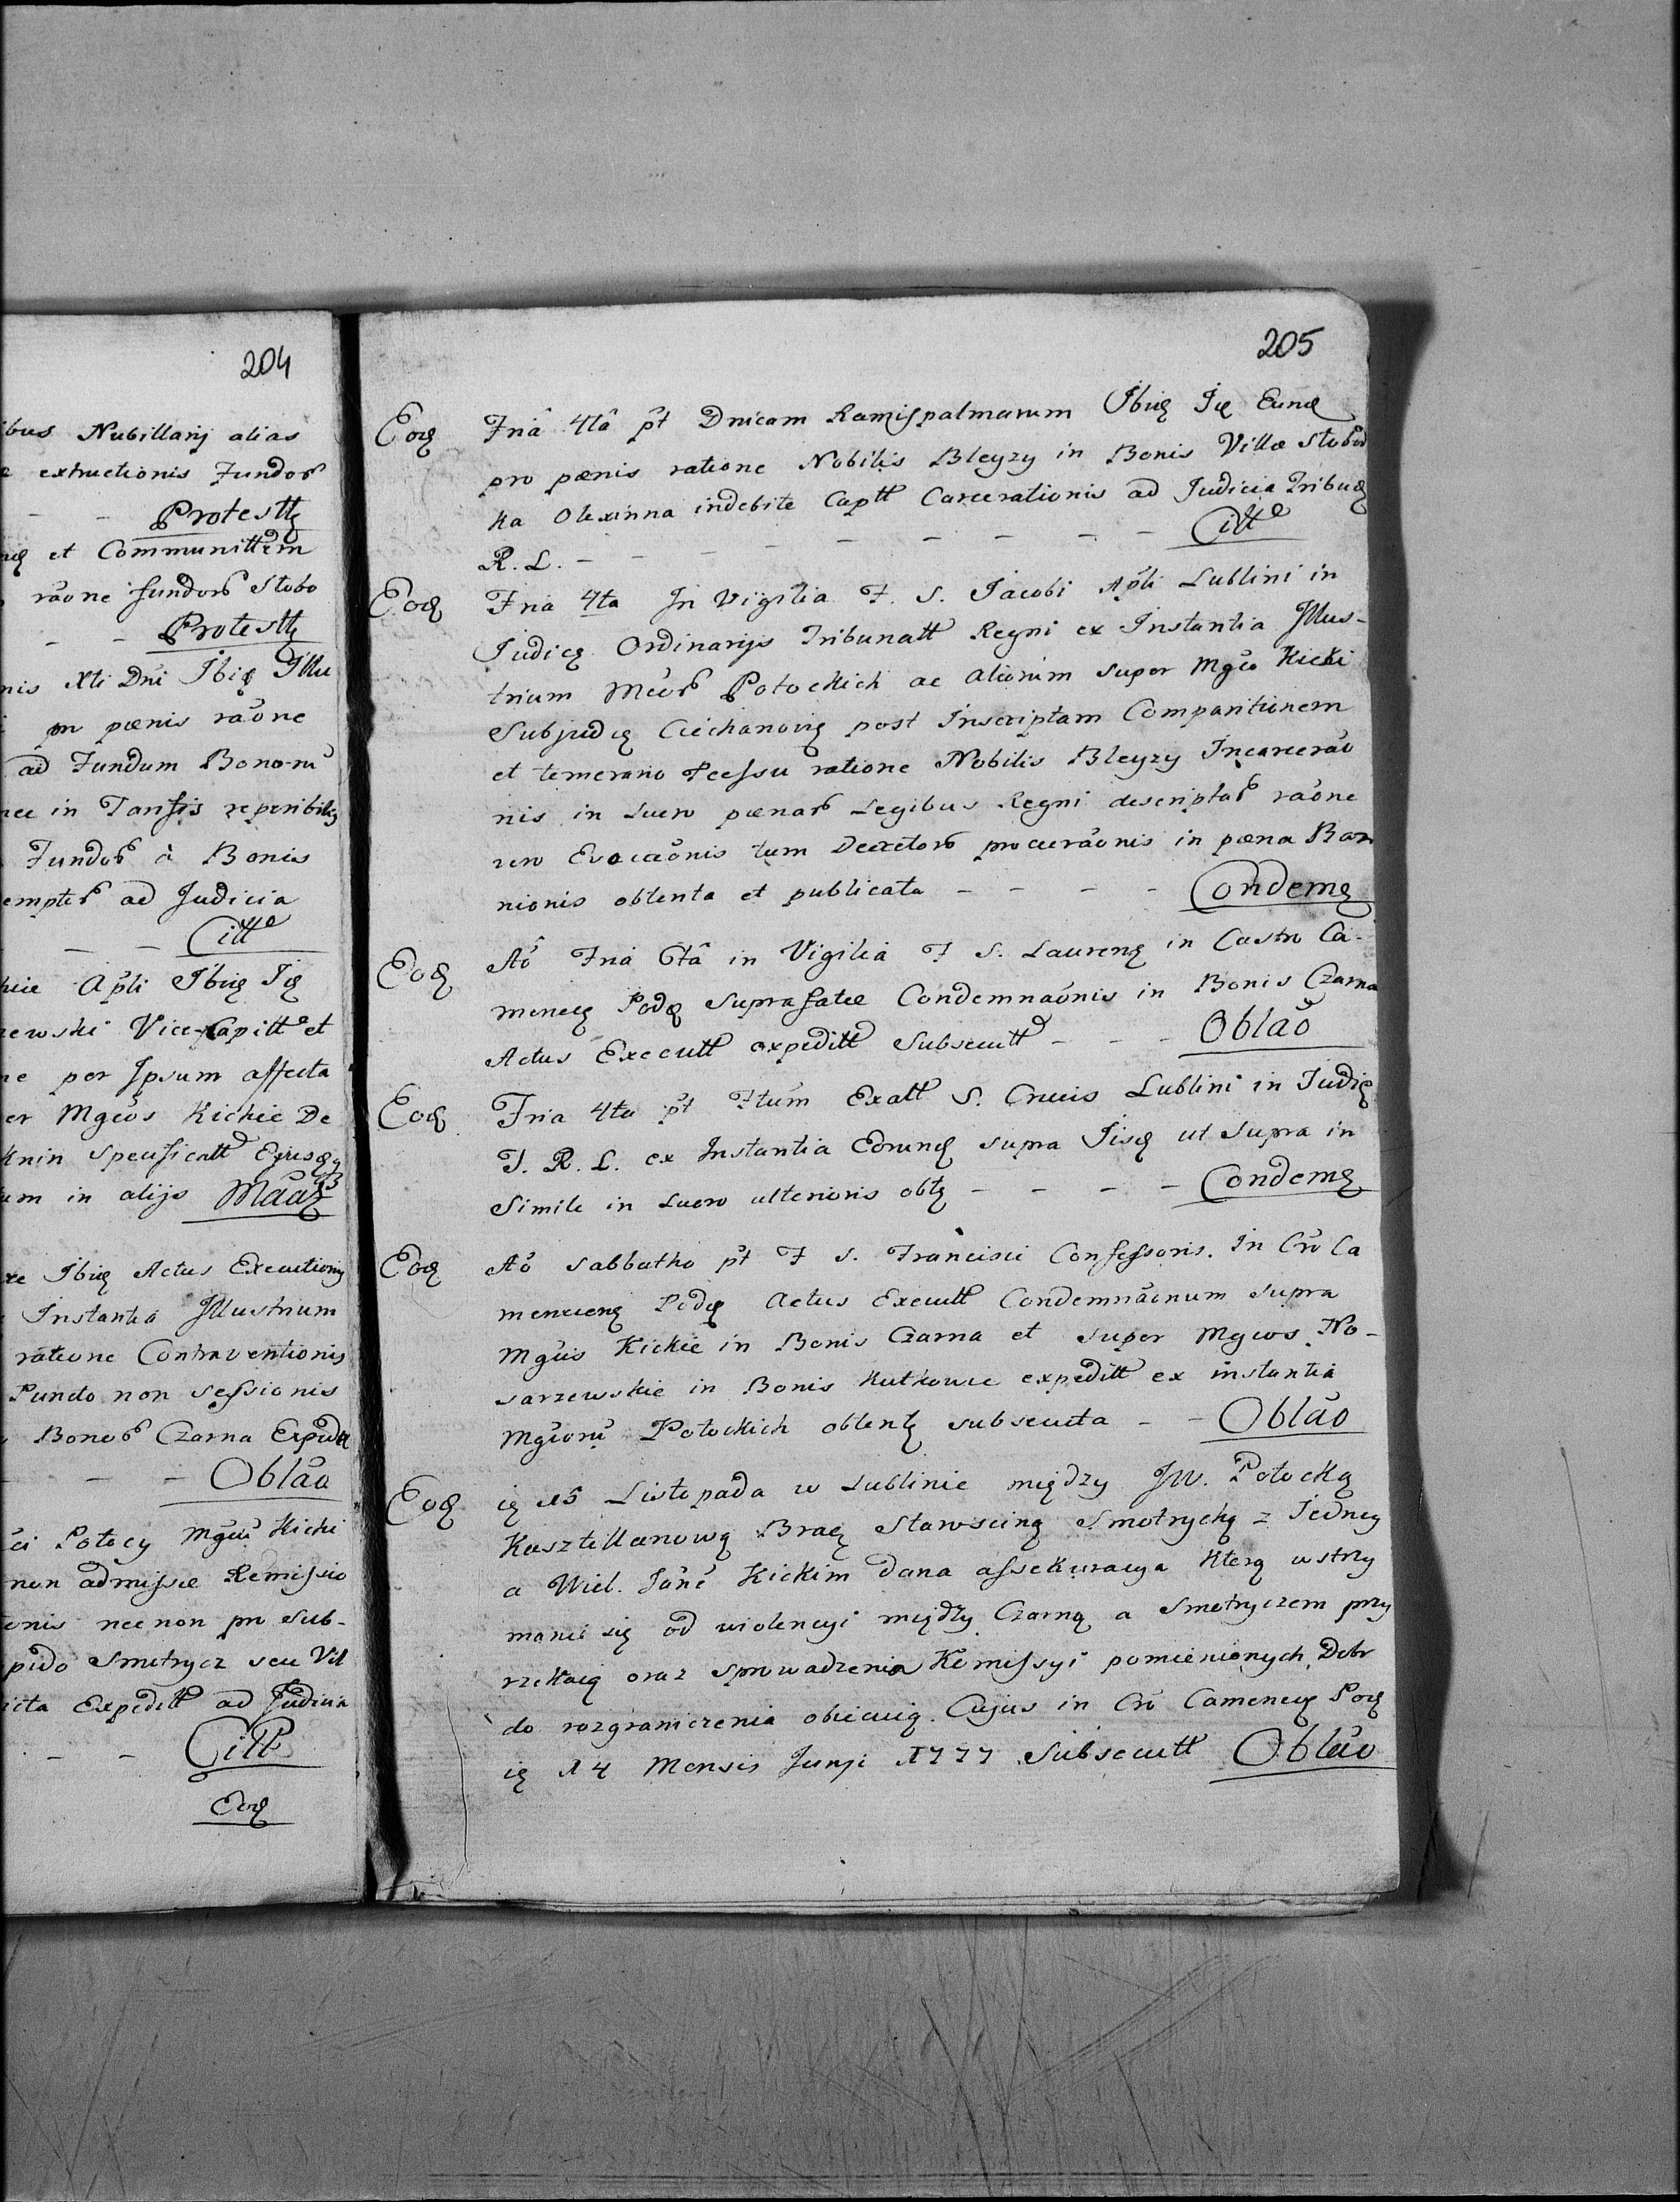 204
ibus Nubillarij alias
extructionis Fundor
Protestt
et Communittem
raõne fundor Słobo
Protestt
nis Xti Dni Ibiq Illu
pro pœnis raõne
ad Fundum Bonorũ
nec in Tansis reperibilis
Fundor à Bonis
emptor ad Judicia
Citt
Apli Ibiq Iq
zewski Vice-Capitt et
ne per Ipsum affecta
er Mgcos Kickie De
knin Specificatt Ejusqq
um in alijs Maaz
re Ibiq Actus Executionis
Instantia Illustrium
ratione Contraventionis
Puncto non sessionis
Bonor Czarna Expedtt
Oblão
Potocy Mgcũ Kicki
non admissæ Remissio
onis nec non pro Sub-
pido Smotrycz seu Vil
icta Expeditt ad Judicia
Citt
Eod
205
Eod Fria 4ta pt Dnicam Ramispalmarum Ibiq Iq Eund
pro pœnis ratione Nobilis Bleyzy in Bonis Villæ Słobod
ka Olexinna indebite Captt Carcerationis ad Judicia Tribu
R. L. - - - - - - - - Citt
Eod Fria 4ta In Vigilia F. S. Jacobi Apli Lublini in
Judicq Ordinarijs Tribunatt Regni ex Instantia Illus-
trium Mcor Potockich ac aliorum super Mgco Kicki
Subjudiq Ciechanoviq post Inscriptam Comparitionem
et temerario recessu ratione Nobilis Bleyzy Incarcerão
nis in Lucro pœnar Legibus Regni descriptar raõne
vero Evocaõnis tum Decretor procuraõnis in pœna Ban
nionis obtenta et publicata - - - - Condemq
Eod Aõ Fria 6tâ in Vigilia F S. Laurenq in Castro Ca-
menecq Podq Suprafatæ Condemnaõnis in Bonis Czarna
Actus Executt expeditt Subsecutt - - - Oblão
Eod Fria 4ta pt Ftum Exatt S. Crucis Lublini in Judiq
T. R. L. ex Instantia Eorund supra Iisd ut Supra in
Simile in Lucro ulterioris obtq - - - - Condemq
Eod Aõ Sabbatho pt F S. Francisci Confessoris. In Crõ Ca
menecenq Podq Actus Executt Condemnaõnum supra
Mgcis Kickie in Bonis Czarna et super Mgcos No-
sarzewskie in Bonis Kutkowce expeditt ex instantia
Mgcorũ Potockich obtentq subsecuta - - Oblão
Eod iq 15 Listopada w Lublinie między JW. Potocką
Kasztellanową Bracq Starościną Smotrycką z Jedney
a Wiel. Janẽ Kickim dana assekuracya Którą wstrzy
manie się od violencyi między Czarną a Smotryczem przy
rzekaią oraz sprowadzenia Komissyi pomienionych Dobr
do rozgraniczenia obiecuią. Cujus in Crõ Camenecq Pod
iq 14 Mensis Junji 1777 Subsecutt Oblão